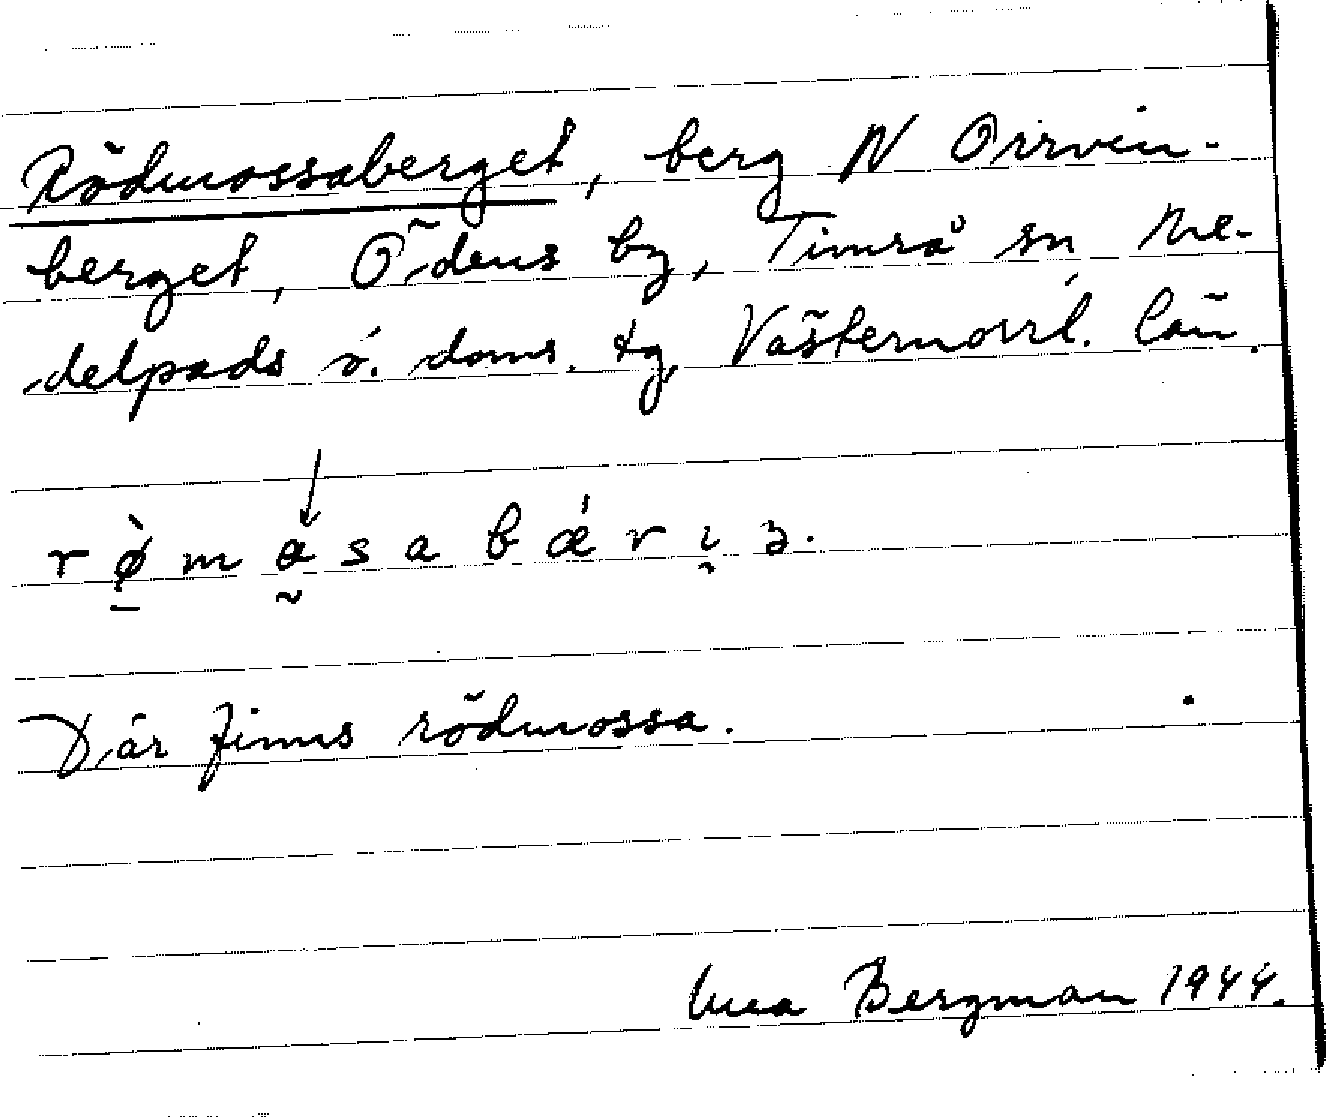 Rödmossaberget, berg N Orrvin-
berget, Ödens by, Timrå sn, Me-
delpads ö. doms. tg, Västernorrl. län.
r ø̀ m a s a b ǽ r ı z.
Där finns rödmossa.
Bergman 1944.